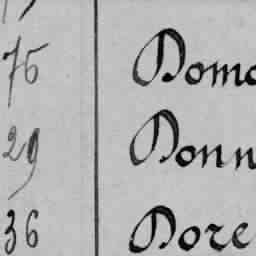 75 Domo
29 Donn
36 Dore